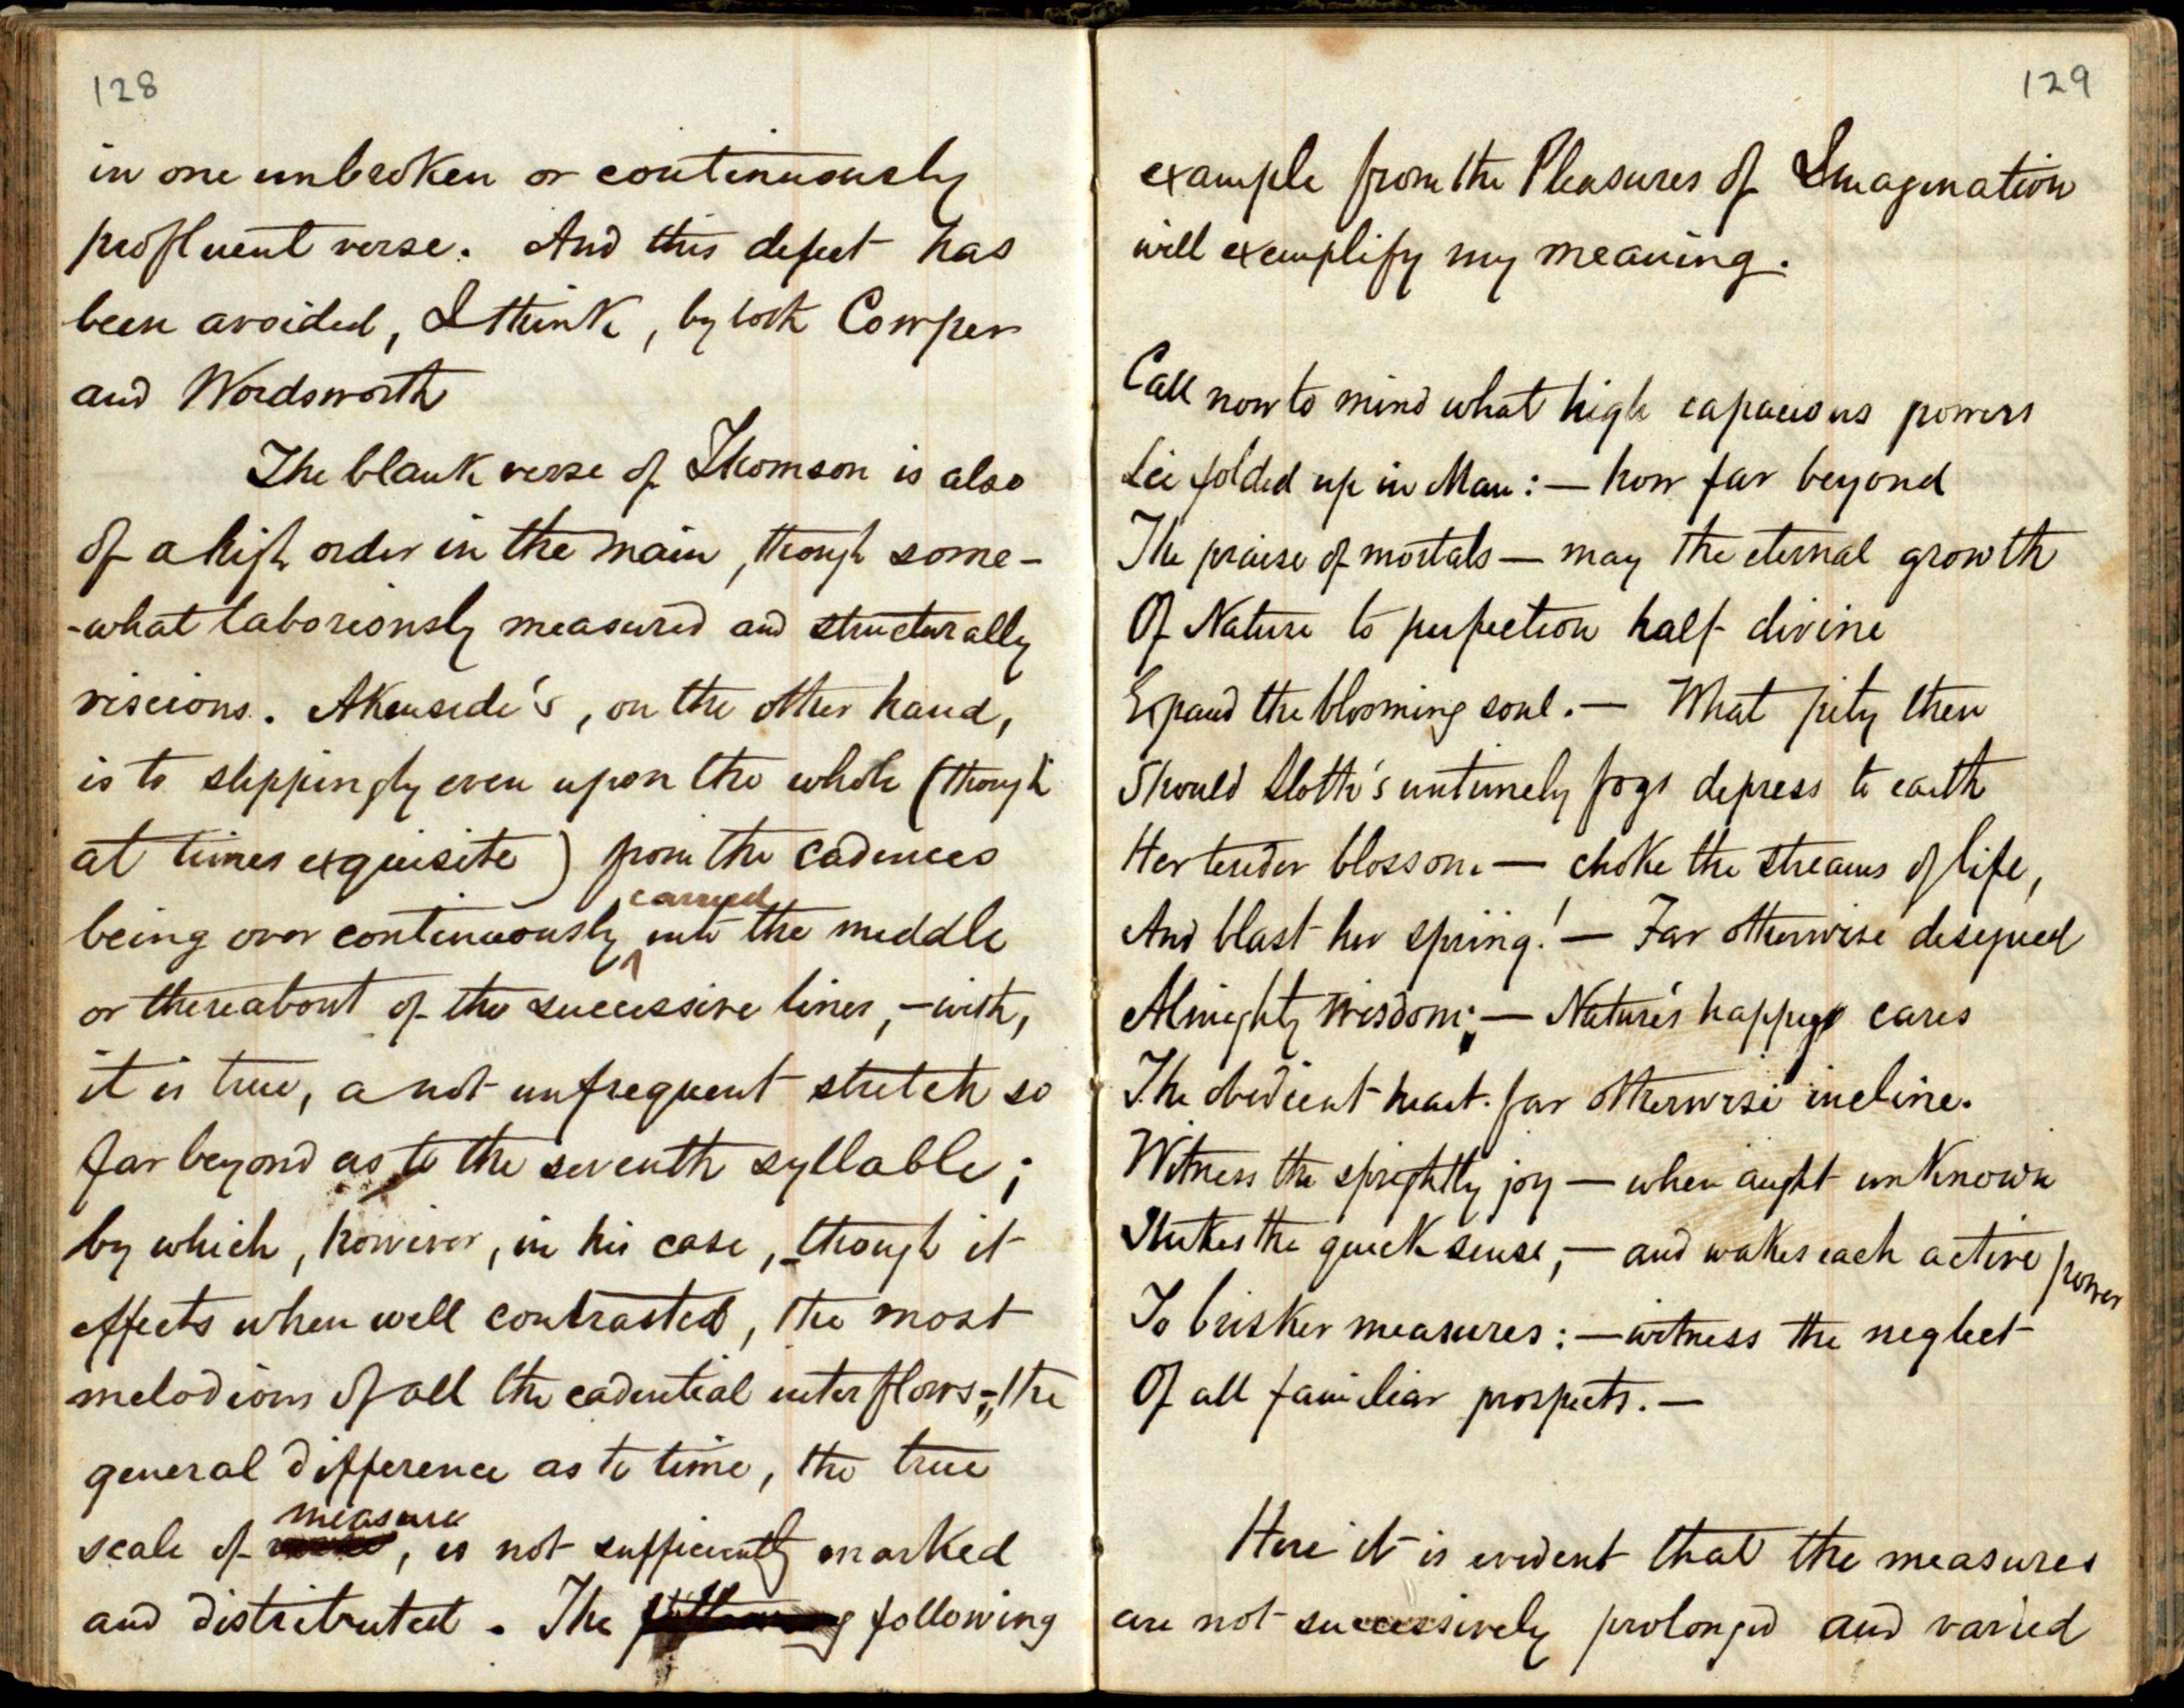 128
in one unbroken or continuously
profluent verse. And this defect has
been avoided, I think, by both Cowper
and Wordsworth
The blank verse of Thomson is also
of a high order in the main, though some-
-what laboriously measured and structurally
viscious. Akenside's, on the other hand,
is to slippingly even upon the whole (though
at times exquisite) from the cadences
being over continuously carried into the middle
or thereabout of the successive lines, – with,
it is true, a not unfrequent stretch so
far beyond as to the seventh syllable;
by which, however, in his case, though it
effects when well contrasted, the most
melodious of all the cadential interflows, – the
general difference as to time, the true
scale of measure, is not sufficiently marked
and distributed. The following
129
example from the Pleasures of Imagination
will exemplify my meaning.
Call now to mind what high capacious powers
Lie folded up in Man: — how far beyond
The praise of mortals — may the eternal growth
Of Nature to perfection half divine
Expand the blooming soul. — What pity then
Should Sloth's untimely fogs depress to earth
Her tender blossom — choke the streams of life,
And blast her spring! — Far otherwise designed
Almighty Wisdom; — Nature's happy cares
The obedient heart far otherwise incline.
Witness the sprightly joy — when aught unknown
Strikes the quick sense, — and wakes each active power
To brisker measures: — witness the neglect
Of all familiar prospects. —
Here it is evident that the measures
are not successively prolonged and varied